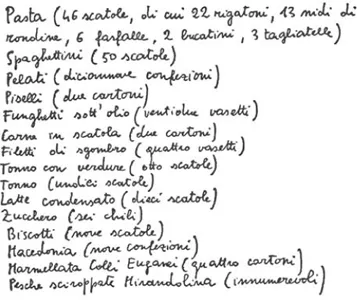 Pasta (46 scatole, di cui 22 rigatoni, 13 nidi di
rondine, 6 farfalle, 2 bucatini, 3 tagliatelle)
Spaghettini (50 scatole)
Pelati (diciannove confezioni)
Piselli (due cartoni)
Funghetti sott'olio (ventidue vasetti)
Carne in scatola (due cartoni)
Filetti di sgombro (quattro vasetti)
Tonno con verdure (otto scatole)
Tonno (undici scatole)
Latte condensato (dieci scatole)
Zucchero (sei chili)
Biscotti (nove scatole)
Macedonia (nove confezioni)
Marmellata Colli Euganei (quattro cartoni)
Pesche sciroppate Mirandolina (innumerevoli)